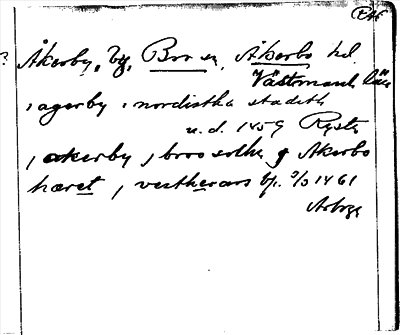 Åkerby, by, Bro sn, Åkerbo hd.
Västmanl. län
i agerby i nordistha stadeth
u. d. 1459
i akerby i broo sokn j Åkerbo
hæret i vestherars bp. 1461
Arboga